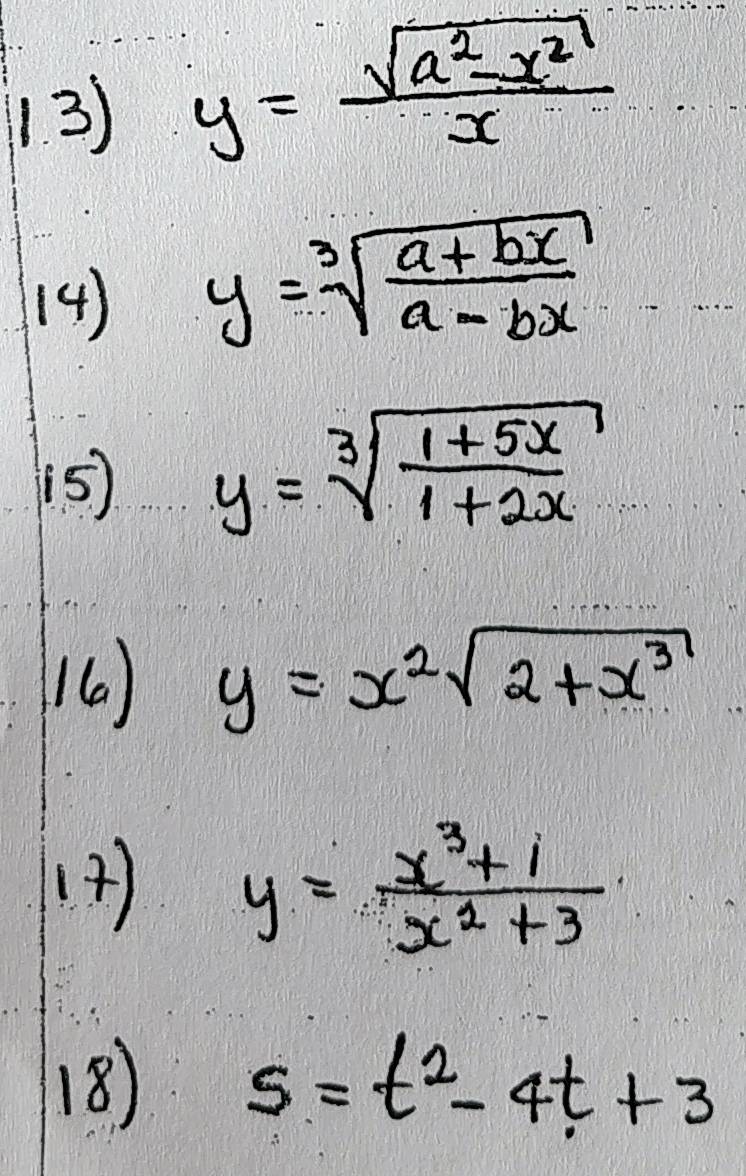 13) y = √(a² - x²) / x
14) y = ∛((a + bx) / (a - bx))
15) y = ∛((1 + 5x) / (1 + 2x))
16) y = x²√(2 + x³)
17) y = (x³ + 1) / (x² + 3)
18) s = t² - 4t + 3